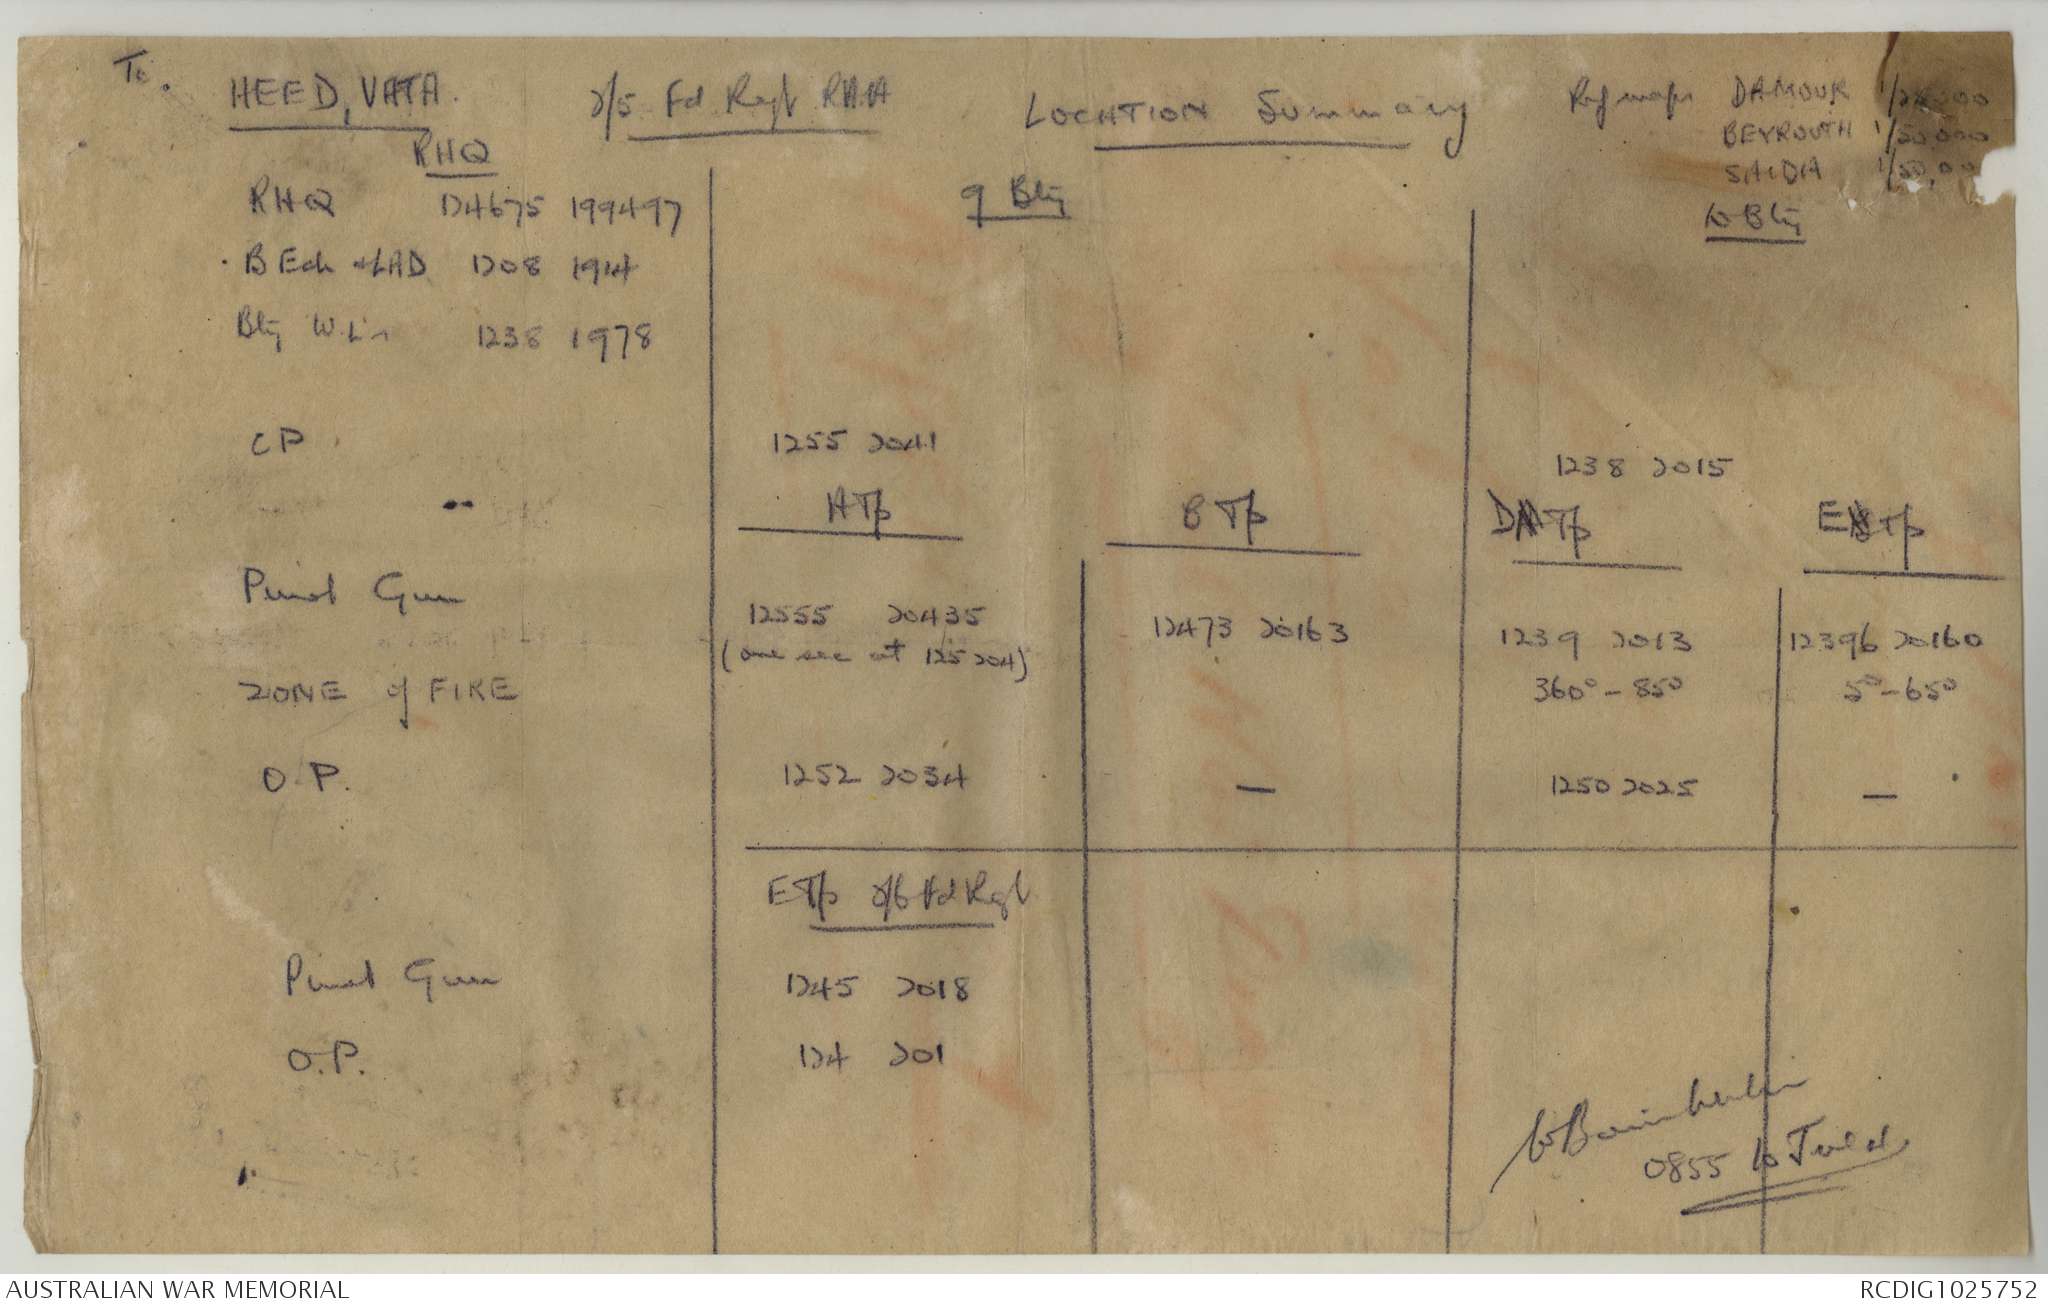 To. HEED, VATA. 2/5 Fd Regt RAA LOCATION Summary Ref maps DAMOUR 1/25,000
BEYROUTH 1/50,000
SAIDA 1/50,00
RHQ 9 Bty 10 Bty
RHQ 124675 199497
B Ech + LAD 1208 1914
Bty W.L's 1238 1978
CP 1255 2041 1238 2015
A Tp B Tp D Tp E Tp
Pivot Gun 12555 20435 12473 20163 1239 2013 12396 20160
(one sec at 125 204)
ZONE of FIRE 360° - 85° 5° - 65°
O.P. 1252 2034 — 1250 2025 —
E Tp 2/6 Fd Regt
Pivot Gun 1245 2018
O.P. 124 201
0855 10 July
AUSTRALIAN WAR MEMORIAL RCDIG1025752